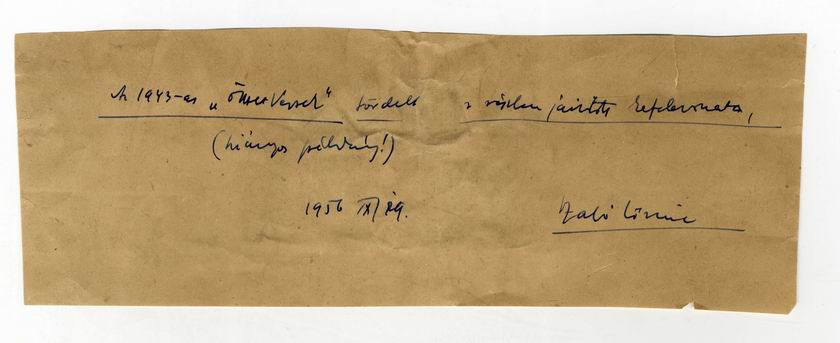 Az 1943-as „Összes Versek” tördelt s részben javított kefelevonata,
(hiányos példány!)
1956 IX/29.
Szabó Lőrinc